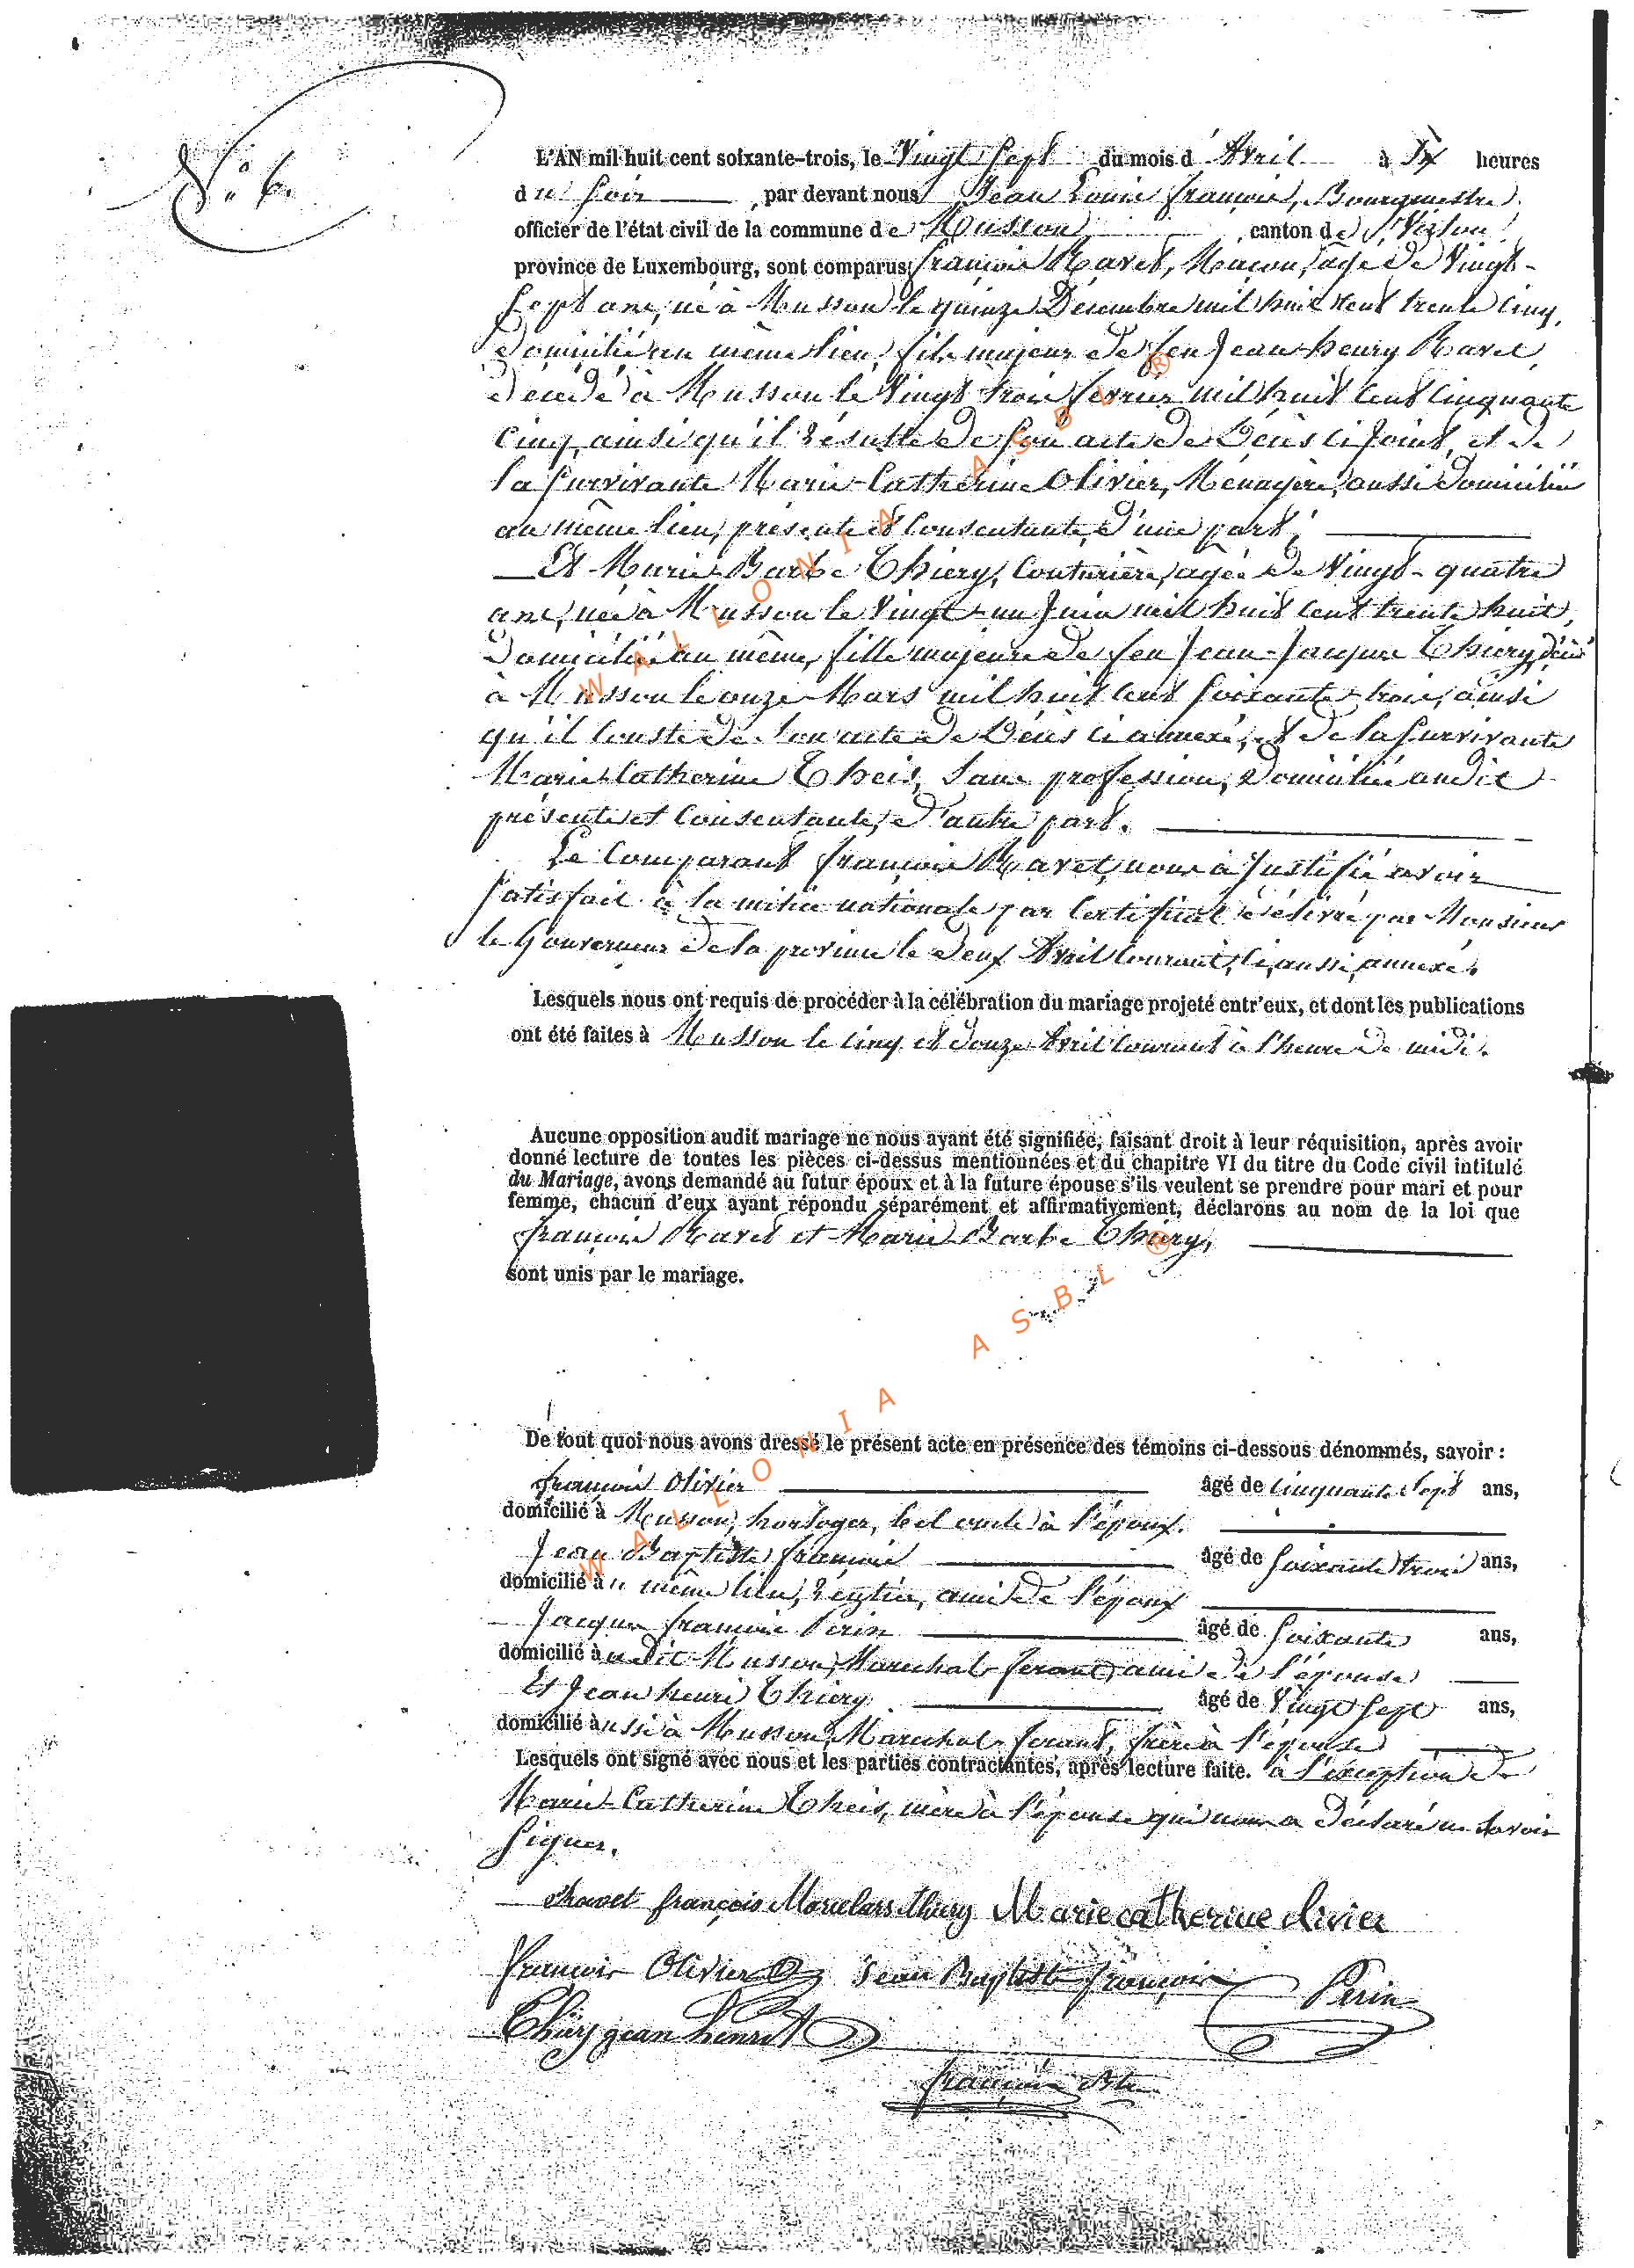 N.° 6.
L'AN mil huit cent soixante-trois, le Vingt Sept du mois d'Avril à Six heures
du Soir par devant nous Jean Louis françois, Bourgmestre
officier de l'état civil de la commune de Musson, canton de Virton
province de Luxembourg, sont comparus françois Ravet, Maçon, âgé de Vingt-
Sept ans, né à Musson le quinze Décembre mil huit cent trente cinq,
domicilié au même lieu, fils majeur de feu Jean henry Ravet,
décédé à Musson le Vingt trois fevrier mil huit cent cinquante
cinq, ainsi qu'il résulte de son acte de Décès ci joint, et de
la Survivante Marie-Catherine Olivier, Ménagère, aussi domiciliée
au même lieu, présente et consentante, d'une part,
Et Marie Barbe Thiery, Couturière, agée de Vingt-quatre
ans, née à Musson le Vingt-un Juin mil huit cent trente huit,
Domiciliée au même, fille majeure de feu Jean-Jacques Thiery, décédé
à Musson le onze Mars mil huit cent Soixante-trois, ainsi
qu'il Conste de son acte de Décès ci annexé, et de la Survivante
Marie Catherine Theis, Sans profession, domiciliée audit
présente et Consentante, d'autre part.
Le Comparant françois Ravet, nous a Justifié avoir
Satisfait à la milice nationale par Certificat délivré par Monsieur
le Gouverneur de la province le deux Avril Courant, ci aussi annexé.
Lesquels nous ont requis de procéder à la célébration du mariage projeté entr'eux, et dont les publications
ont été faites à Musson le cinq et douze Avril Courant à l'heure de midi.
Aucune opposition audit mariage ne nous ayant été signifiée, faisant droit à leur réquisition, après avoir
donné lecture de toutes les pièces ci-dessus mentionnées et du chapitre VI du titre du Code civil intitulé
du Mariage, avons demandé au futur époux et à la future épouse s'ils veulent se prendre pour mari et pour
femme, chacun d'eux ayant répondu séparément et affirmativement, déclarons au nom de la loi que
françois Ravet et Marie Barbe Thiery,
sont unis par le mariage.
De tout quoi nous avons dressé le présent acte en présence des témoins ci-dessous dénommés, savoir :
françois Olivier âgé de Cinquante Sept ans,
domicilié à Musson, horloger, bel oncle à l'époux.
Jean Baptiste françois âgé de Soixante trois ans,
domicilié au même lieu, rentier, ami de l'époux
Jacques françois Perin âgé de Soixante ans,
domicilié audit Musson, Marechal ferant, ami de l'épouse
Et Jean henri Thiery âgé de Vingt Sept ans,
domicilié aussi à Musson, Marechal-ferant, frère à l'épouse
Lesquels ont signé avec nous et les parties contractantes, après lecture faite. à l'exception de
Marie-Catherine Theis, mère à l'épouse qui nous a déclaré ne Savoir
Signer.
Ravet françois Thiery Marie catherine olivier
françois Olivier Jean Baptiste françois Perin
Thiery jean henri
françois
WALLONIA ASBL ®
WALLONIA ASBL ®